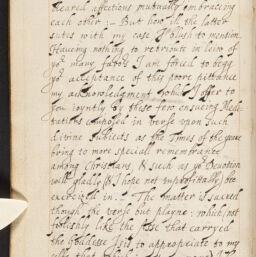 cleared affections mutually embracing
each other :- But how ill the latter
sutes with my case I blush to mention
Having nothing to retribute in lieu of
yor many favors I am forced to begg
yor acceptance of this poore pittance
my acknowledgment, which I offer to
you joyntly by these few ensueing Medi-
tations composed in verse upon such
divine subiects as the Times of the yeare
bring to more speciall remembrance
among Christians, & such as yor Devotion
will gladly (& I hope not unprofitably) bee
exercised in. The matter is sacred
though the verse but playne: which not
foolishly like the Asse that carryed
the Goddesse Isis to appropriate to my
selfe that